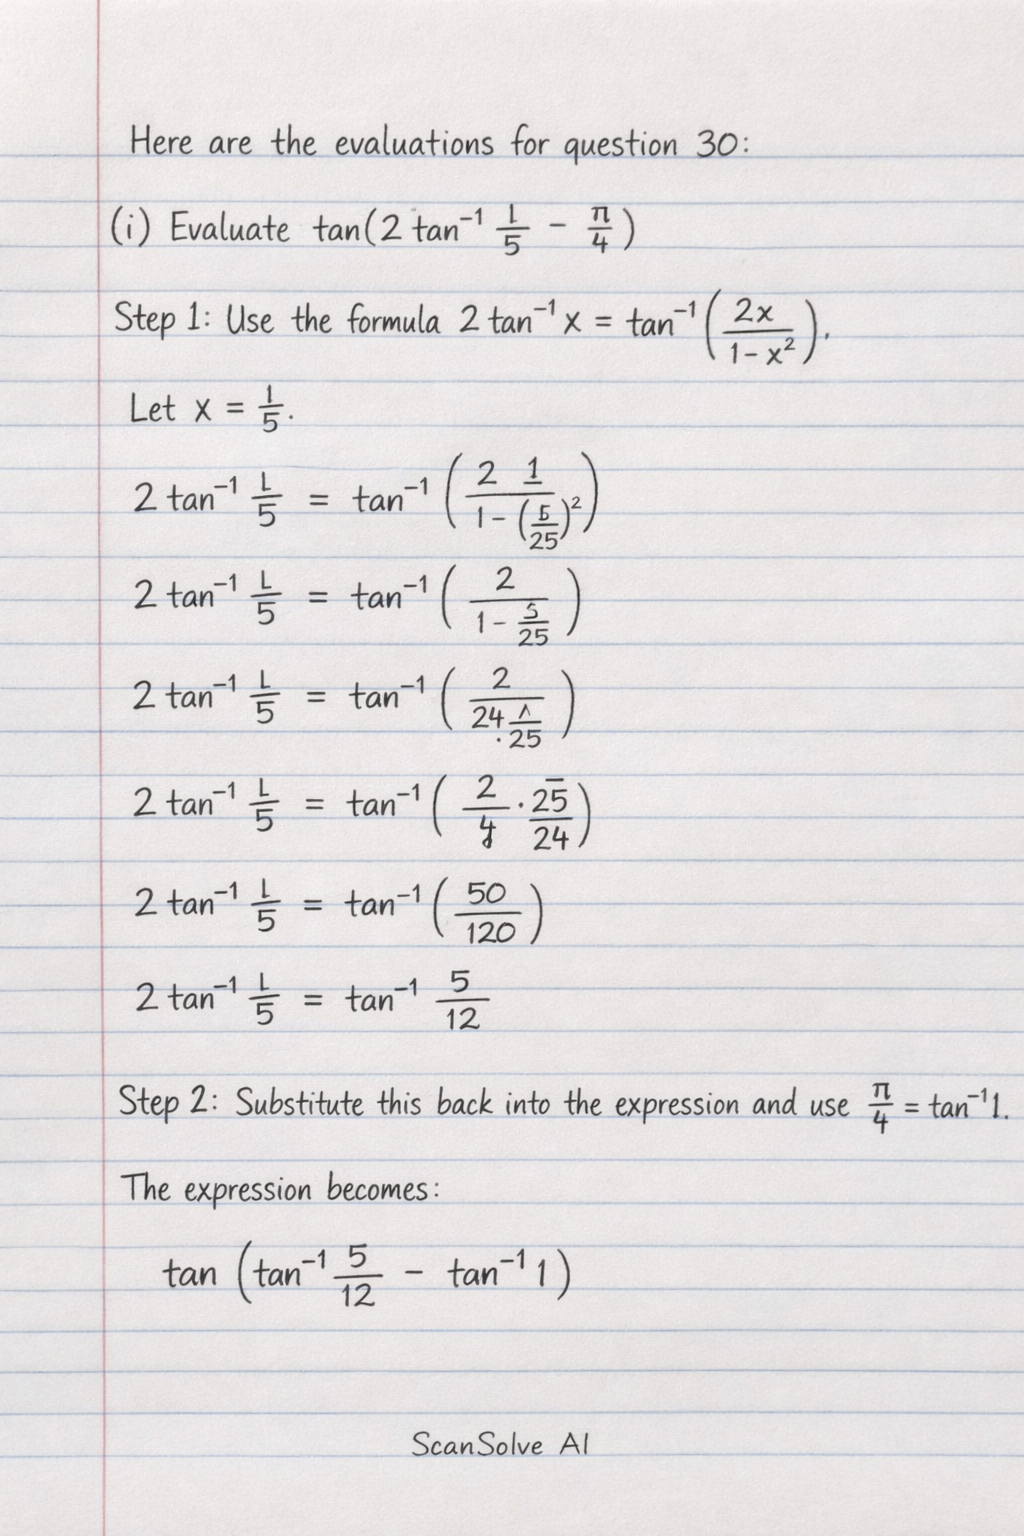 Here are the evaluations for question 30:
(i) Evaluate tan(2 tan⁻¹ 1/5 − π/4)
Step 1: Use the formula 2 tan⁻¹ x = tan⁻¹(2x/(1 − x²)).
Let x = 1/5.
2 tan⁻¹ 1/5 = tan⁻¹((2 1)/(1 − (5/25)²))
2 tan⁻¹ 1/5 = tan⁻¹(2/(1 − 5/25))
2 tan⁻¹ 1/5 = tan⁻¹(2/(24 /25))
2 tan⁻¹ 1/5 = tan⁻¹(2/ · 25/24)
2 tan⁻¹ 1/5 = tan⁻¹(50/120)
2 tan⁻¹ 1/5 = tan⁻¹ 5/12
Step 2: Substitute this back into the expression and use π/4 = tan⁻¹1.
The expression becomes:
tan (tan⁻¹ 5/12 − tan⁻¹ 1)
ScanSolve AI